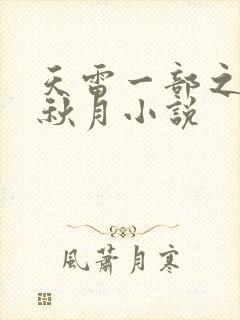 天雷一部之
秋月小説
風蕭月寒